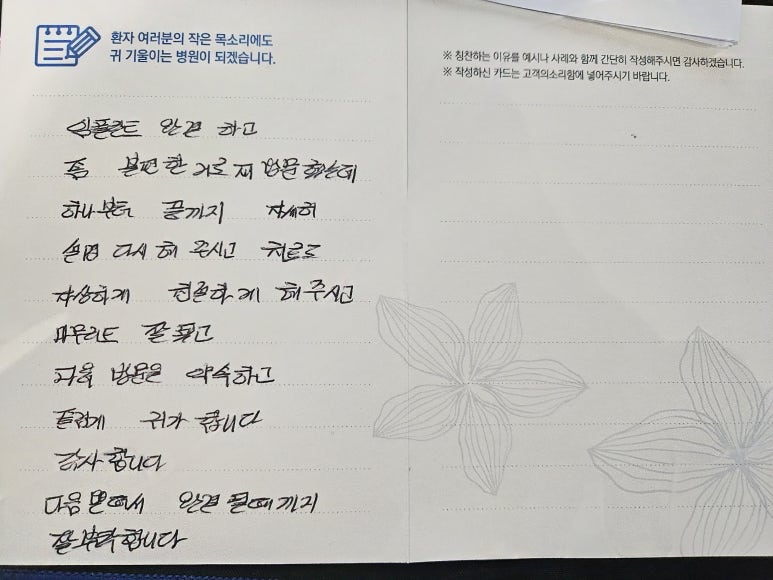 환자 여러분의 작은 목소리에도
귀 기울이는 병원이 되겠습니다.
※ 칭찬하는 이유를 예시나 사례와 함께 간단히 작성해주시면 감사하겠습니다.
※ 작성하신 카드는 고객의소리함에 넣어주시기 바랍니다.
임플란트 완결 하고
좀 불편한 거로 재 방문 했는데
하나부터 끝까지 자세히
설명 다시 해 주시고 치료도
자상하게 친절하게 해 주시고
마무리도 잘 하고
다음 방문을 약속하고
즐겁게 귀가 합니다
감사 합니다
다음 완결 될때 까지
잘 부탁합니다